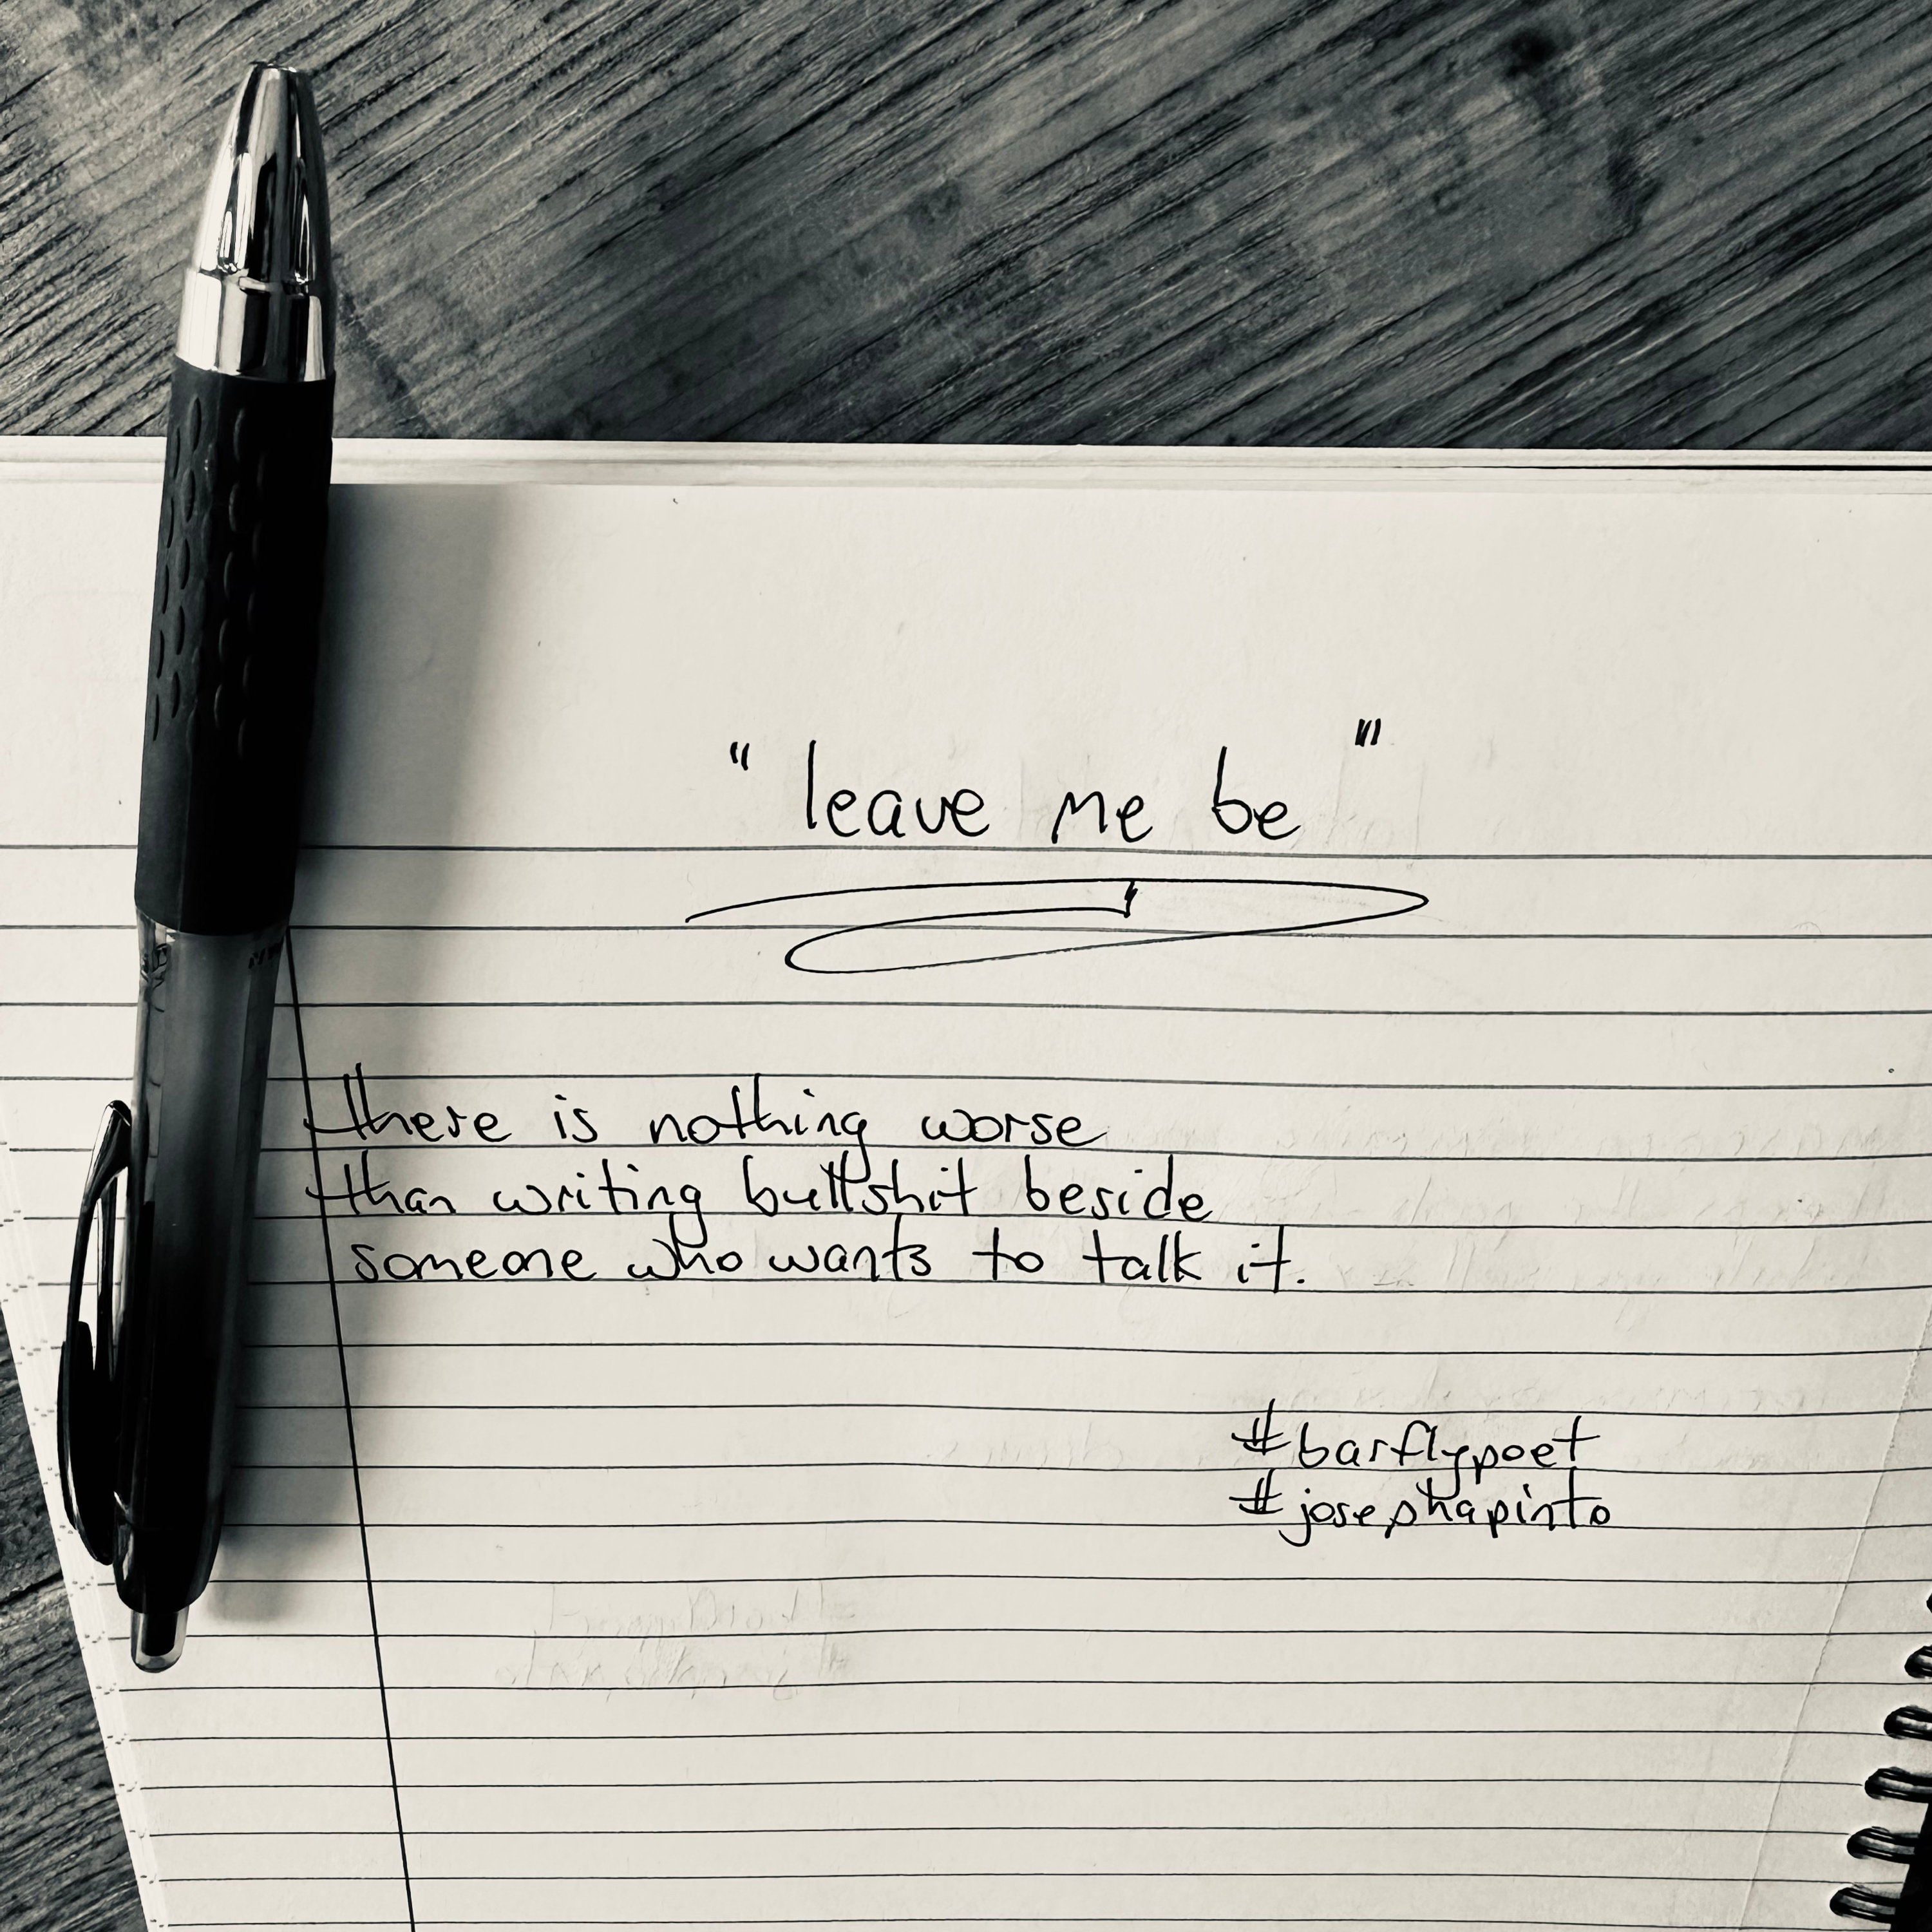 "leave me be"
there is nothing worse
than writing bullshit beside
someone who wants to talk it.
#barflypoet
#josephapinto